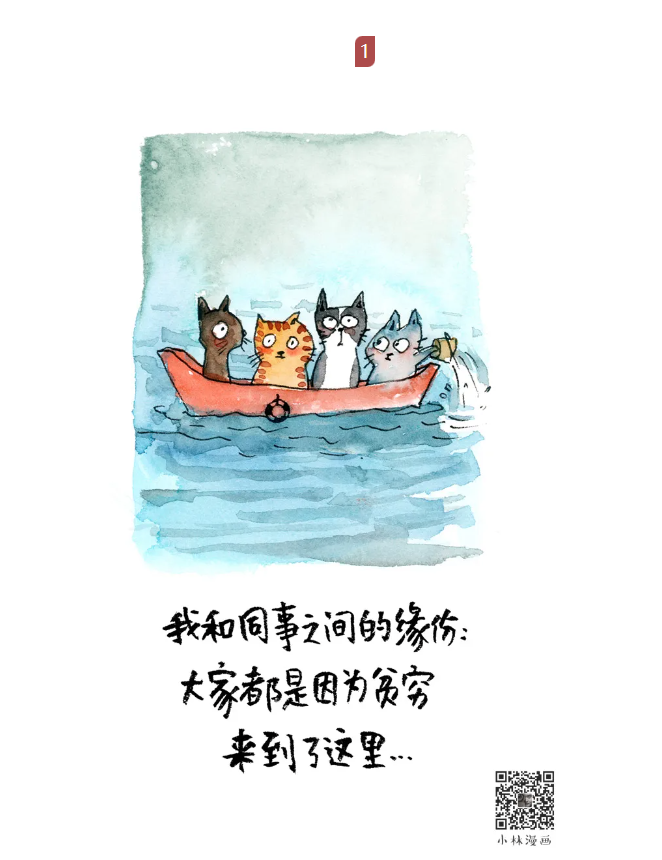 1
我和同事之间的缘份:
大家都是因为贫穷
来到了这里...
小林漫画